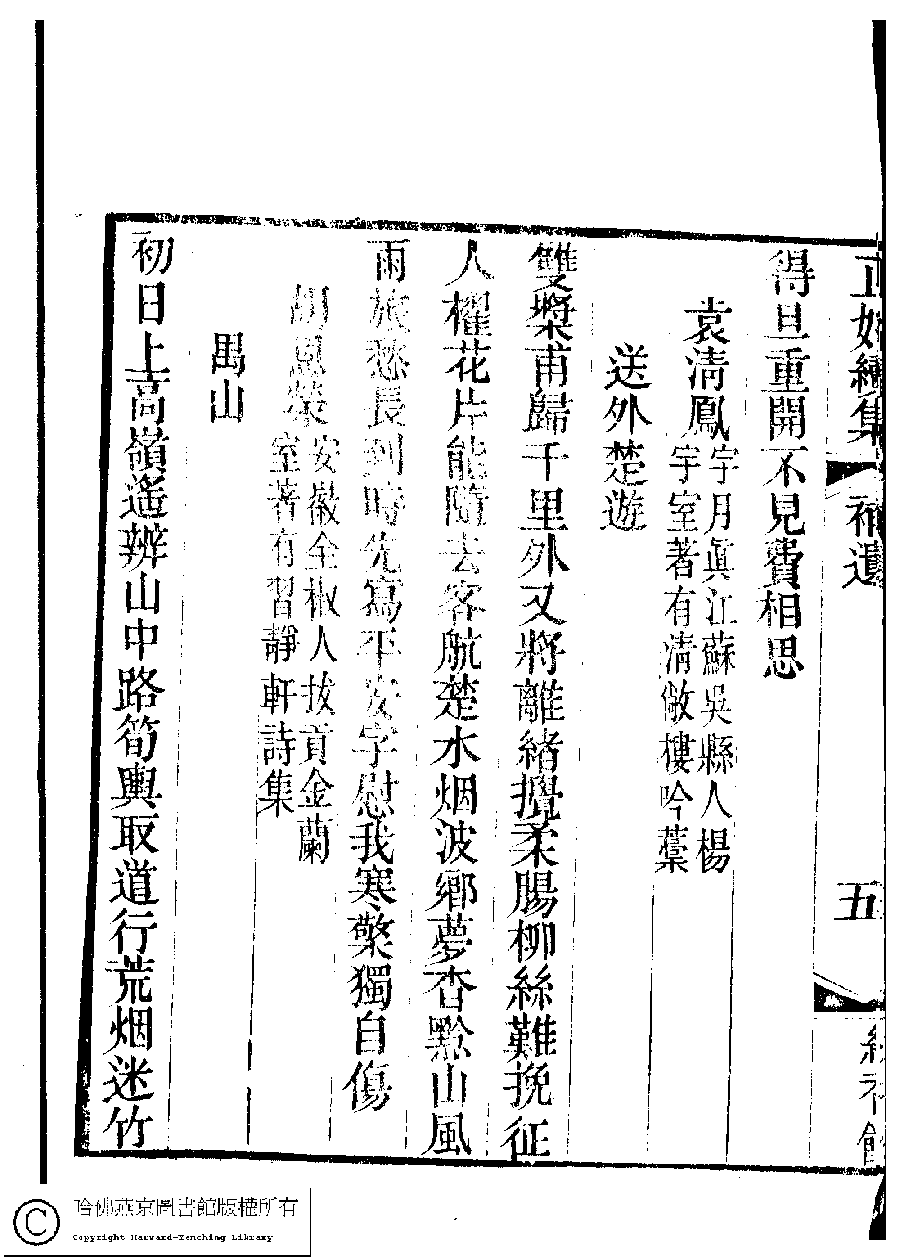 正始續集
補遺
五
得且重開不見費相思
袁淸鳳
字月眞江蘇吳縣人楊
宇室著有淸敞樓吟藁
送外楚遊
雙槳甫歸千里外又將離緒攪柔腸柳絲難挽征
人櫂花片能隨去客航楚水烟波鄉夢杳黔山風
雨旅愁長到時先寫平安字慰我寒檠獨自傷
胡鳳
安徽全椒人拔貢金蘭
室著有習靜軒詩集
禺山
初日上高嶺遙辨山中路筍輿取道行荒烟迷竹
哈佛燕京圖書館版權所有
Copyright Harvard-Yenching Library